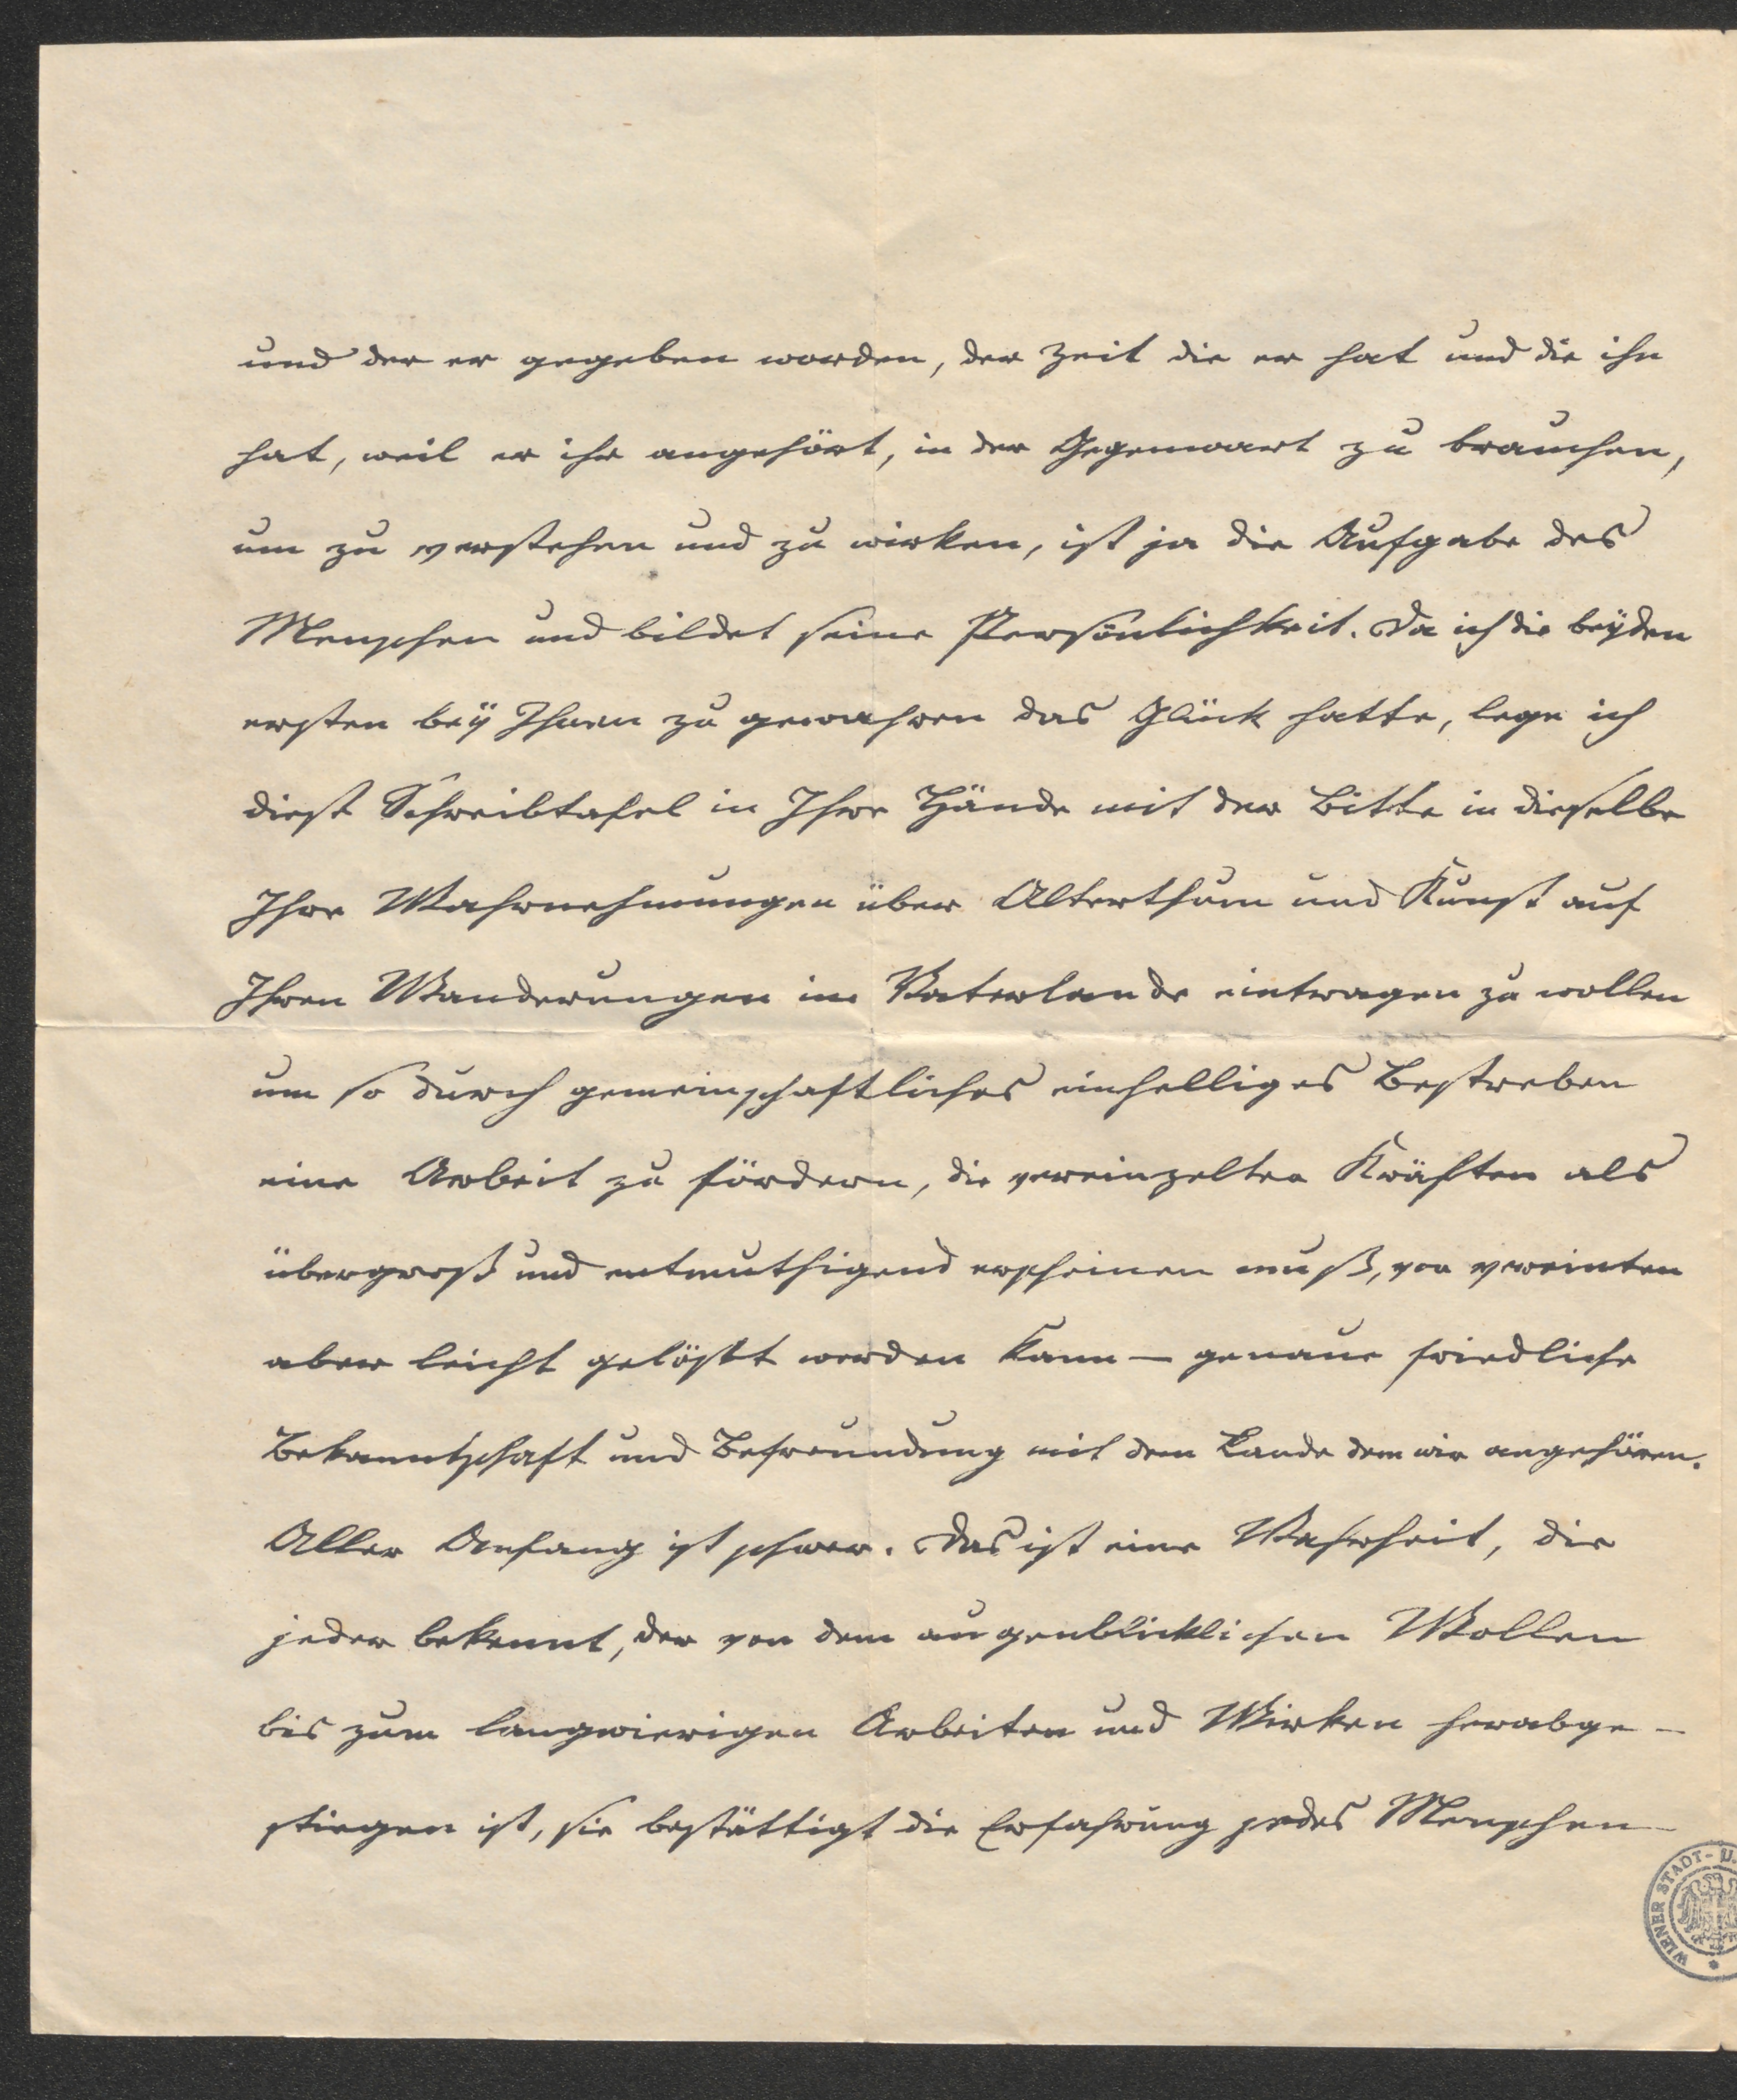 und der er gegeben worden, der Zeit die er hat und die ihn
hat, weil er ihr angehört, in der Gegenwart zu brauchen,
um zu verstehen und zu wirken, ist ja die Aufgabe des
Menschen und bildet seine Persönlichkeit. Da ich die beÿden
ersten beÿ Ihnen zu gewahren das Glück hatte, lege ich
diese Schreibtafel in Ihre Hände mit der Bitte in dieselbe
Ihre Wahrnehmungen über Alterthum und Kunst auf
Ihren Wanderungen im Vaterlande eintragen zu wollen
um so durch gemeinschaftliches einhelliges Bestreben
eine Arbeit zu fördern, die vereinzelten Kräften als
übergroß und entmuthigend erscheinen muß, von vereinten
aber leicht gelößt werden kann — genaue friedliche
Bekanntschaft und Befreundung mit dem Lande dem wir angehören.
Aller Anfang ist schwer. Das ist eine Wahrheit, die
jeder bekennt, der von dem augenblicklichen Wollen
bis zum langwierigen Arbeiten und Wirken herabge-
stiegen ist, sie bestättigt die Erfahrung jedes Menschen
WIENER STADT- U.